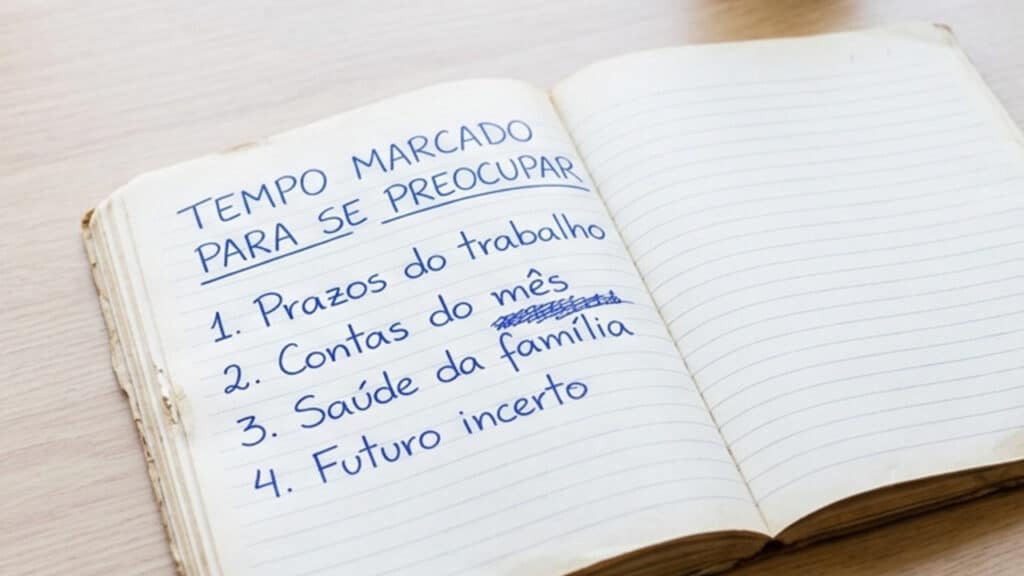 TEMPO MARCADO
PARA SE PREOCUPAR
1. Prazos do trabalho
2. Contas do mês
3. Saúde da família
4. Futuro incerto